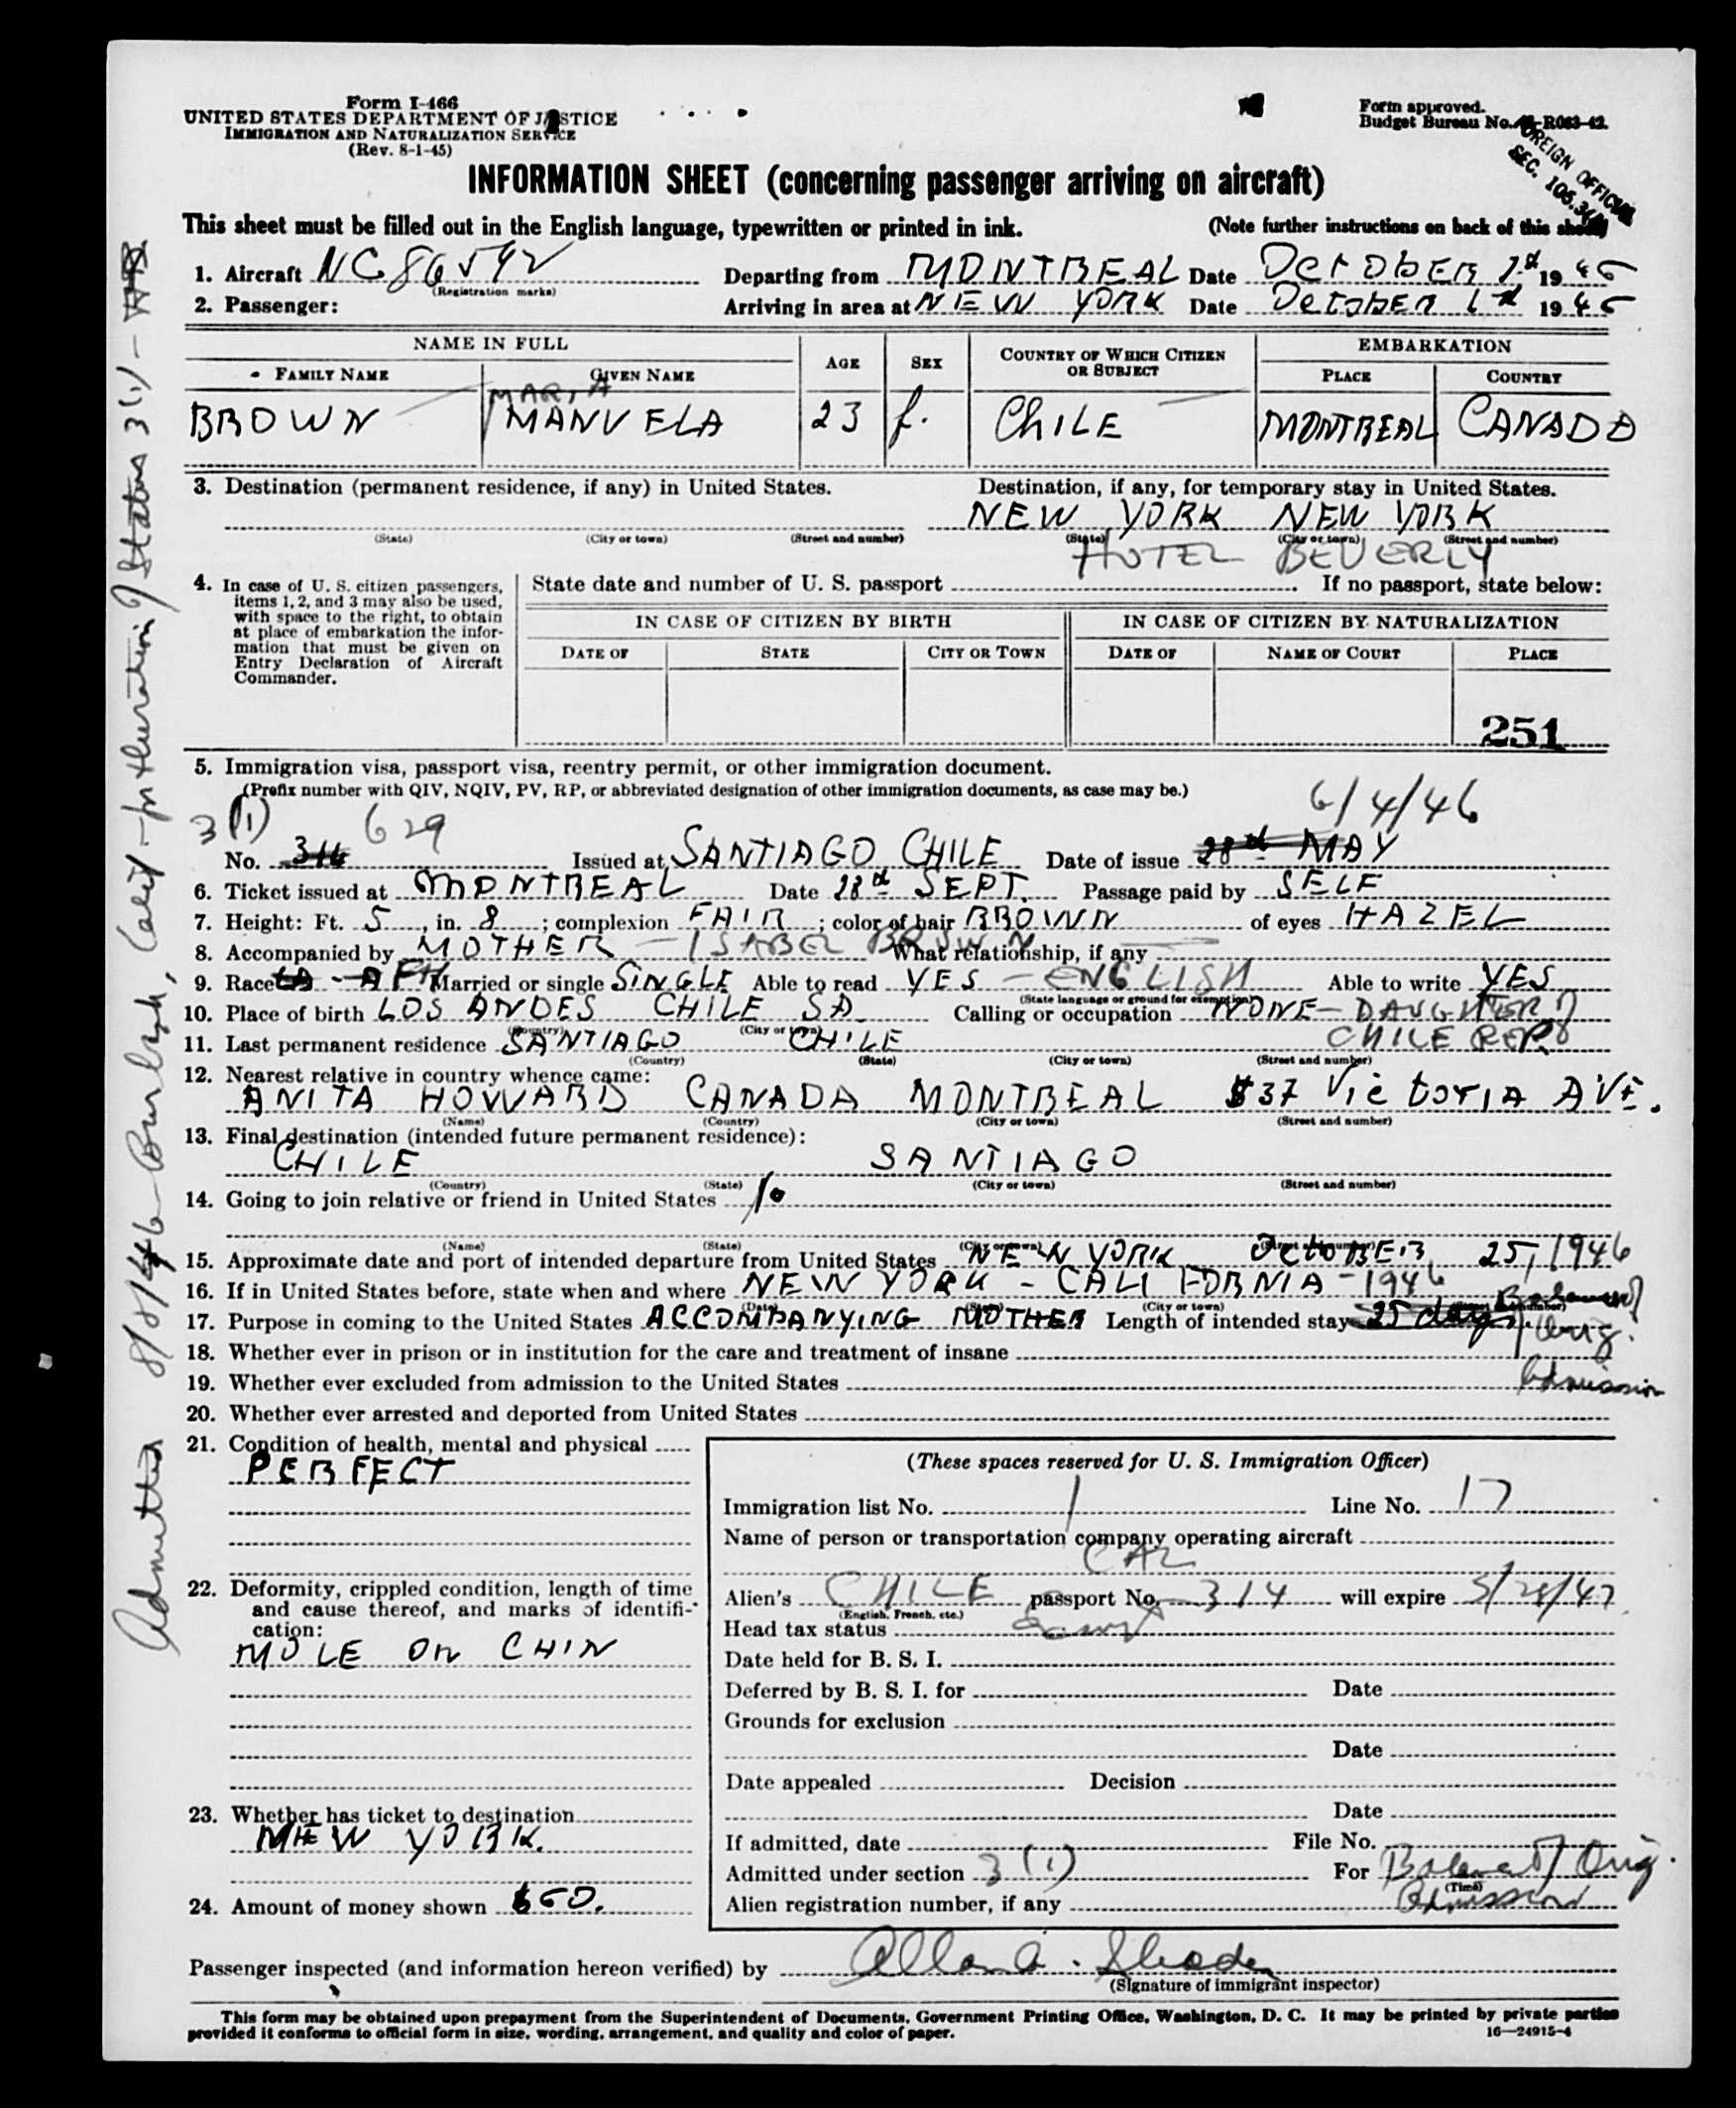 Form I-466
UNITED STATES DEPARTMENT OF JUSTICE
IMMIGRATION AND NATURALIZATION SERVICE
(Rev. 8-1-45)
Form approved.
Budget Bureau No. R063-42.
FOREIGN OFFICIAL
SEC. 105.3
INFORMATION SHEET (concerning passenger arriving on aircraft)
This sheet must be filled out in the English language, typewritten or printed in ink. (Note further instructions on back of this sheet)
1. Aircraft NC86542 Departing from MONTREAL Date OCTOBER 1st 1946
(Registration marks)
2. Passenger: Arriving in area at NEW YORK Date OCTOBER 1st 1946
NAME IN FULL AGE SEX COUNTRY OF WHICH CITIZEN OR SUBJECT EMBARKATION
FAMILY NAME GIVEN NAME PLACE COUNTRY
MARIA
BROWN MANUELA 23 f. CHILE MONTREAL CANADA
3. Destination (permanent residence, if any) in United States. Destination, if any, for temporary stay in United States.
NEW YORK NEW YORK
(State) (City or town) (Street and number) (State) (City or town) (Street and number)
HOTEL BEVERLY
4. In case of U. S. citizen passengers, items 1, 2, and 3 may also be used, with space to the right, to obtain at place of embarkation the information that must be given on Entry Declaration of Aircraft Commander.
State date and number of U. S. passport If no passport, state below:
IN CASE OF CITIZEN BY BIRTH IN CASE OF CITIZEN BY NATURALIZATION
DATE OF STATE CITY OR TOWN DATE OF NAME OF COURT PLACE
251
5. Immigration visa, passport visa, reentry permit, or other immigration document.
(Prefix number with QIV, NQIV, PV, RP, or abbreviated designation of other immigration documents, as case may be.)
3(1) 629 6/4/46
No. 314 Issued at SANTIAGO CHILE Date of issue 28th MAY
6. Ticket issued at MONTREAL Date 28th SEPT. Passage paid by SELF
7. Height: Ft. 5, in. 8; complexion FAIR; color of hair BROWN of eyes HAZEL
8. Accompanied by MOTHER - ISABEL BROWN What relationship, if any
9. Race Married or single SINGLE Able to read YES - ENGLISH Able to write YES
(State language or ground for exemption)
10. Place of birth LOS ANDES CHILE SA Calling or occupation NONE - DAUGHTER OF
(Country) (City or town)
CHILE REP.
11. Last permanent residence SANTIAGO CHILE
(Country) (State) (City or town) (Street and number)
12. Nearest relative in country whence came:
ANITA HOWARD CANADA MONTREAL 837 Victoria AVE.
(Name) (Country) (City or town) (Street and number)
13. Final destination (intended future permanent residence):
CHILE SANTIAGO
(Country) (State) (City or town) (Street and number)
14. Going to join relative or friend in United States
(Name) (State) (City or town) (Street and number)
15. Approximate date and port of intended departure from United States NEW YORK OCTOBER 25, 1946
16. If in United States before, state when and where NEW YORK - CALIFORNIA - 1946
(Date) (State) (City or town) (Street and number)
17. Purpose in coming to the United States ACCOMPANYING MOTHER Length of intended stay 25 days
Balance of
Orig.
Admission
18. Whether ever in prison or in institution for the care and treatment of insane
19. Whether ever excluded from admission to the United States
20. Whether ever arrested and deported from United States
21. Condition of health, mental and physical
PERFECT
22. Deformity, crippled condition, length of time
and cause thereof, and marks of identifi-
cation:
MOLE ON CHIN
23. Whether has ticket to destination
NEW YORK.
24. Amount of money shown $60.
(These spaces reserved for U. S. Immigration Officer)
Immigration list No. 1 Line No. 17
Name of person or transportation company operating aircraft
Alien's CHILE passport No. 314 will expire 5/28/47
(English, French, etc.)
Head tax status Exempt
Date held for B. S. I.
Deferred by B. S. I. for Date
Grounds for exclusion
Date
Date appealed Decision
Date
If admitted, date File No.
Admitted under section 3(1) For Balance of Orig.
(Time)
Admission
Alien registration number, if any
Passenger inspected (and information hereon verified) by Allan A.
(Signature of immigrant inspector)
This form may be obtained upon prepayment from the Superintendent of Documents, Government Printing Office, Washington, D. C. It may be printed by private parties
provided it conforms to official form in size, wording, arrangement, and quality and color of paper.
16—24915-4
Admitted 8/8/46 Burbank, Calif - for duration of Status 3(1) -